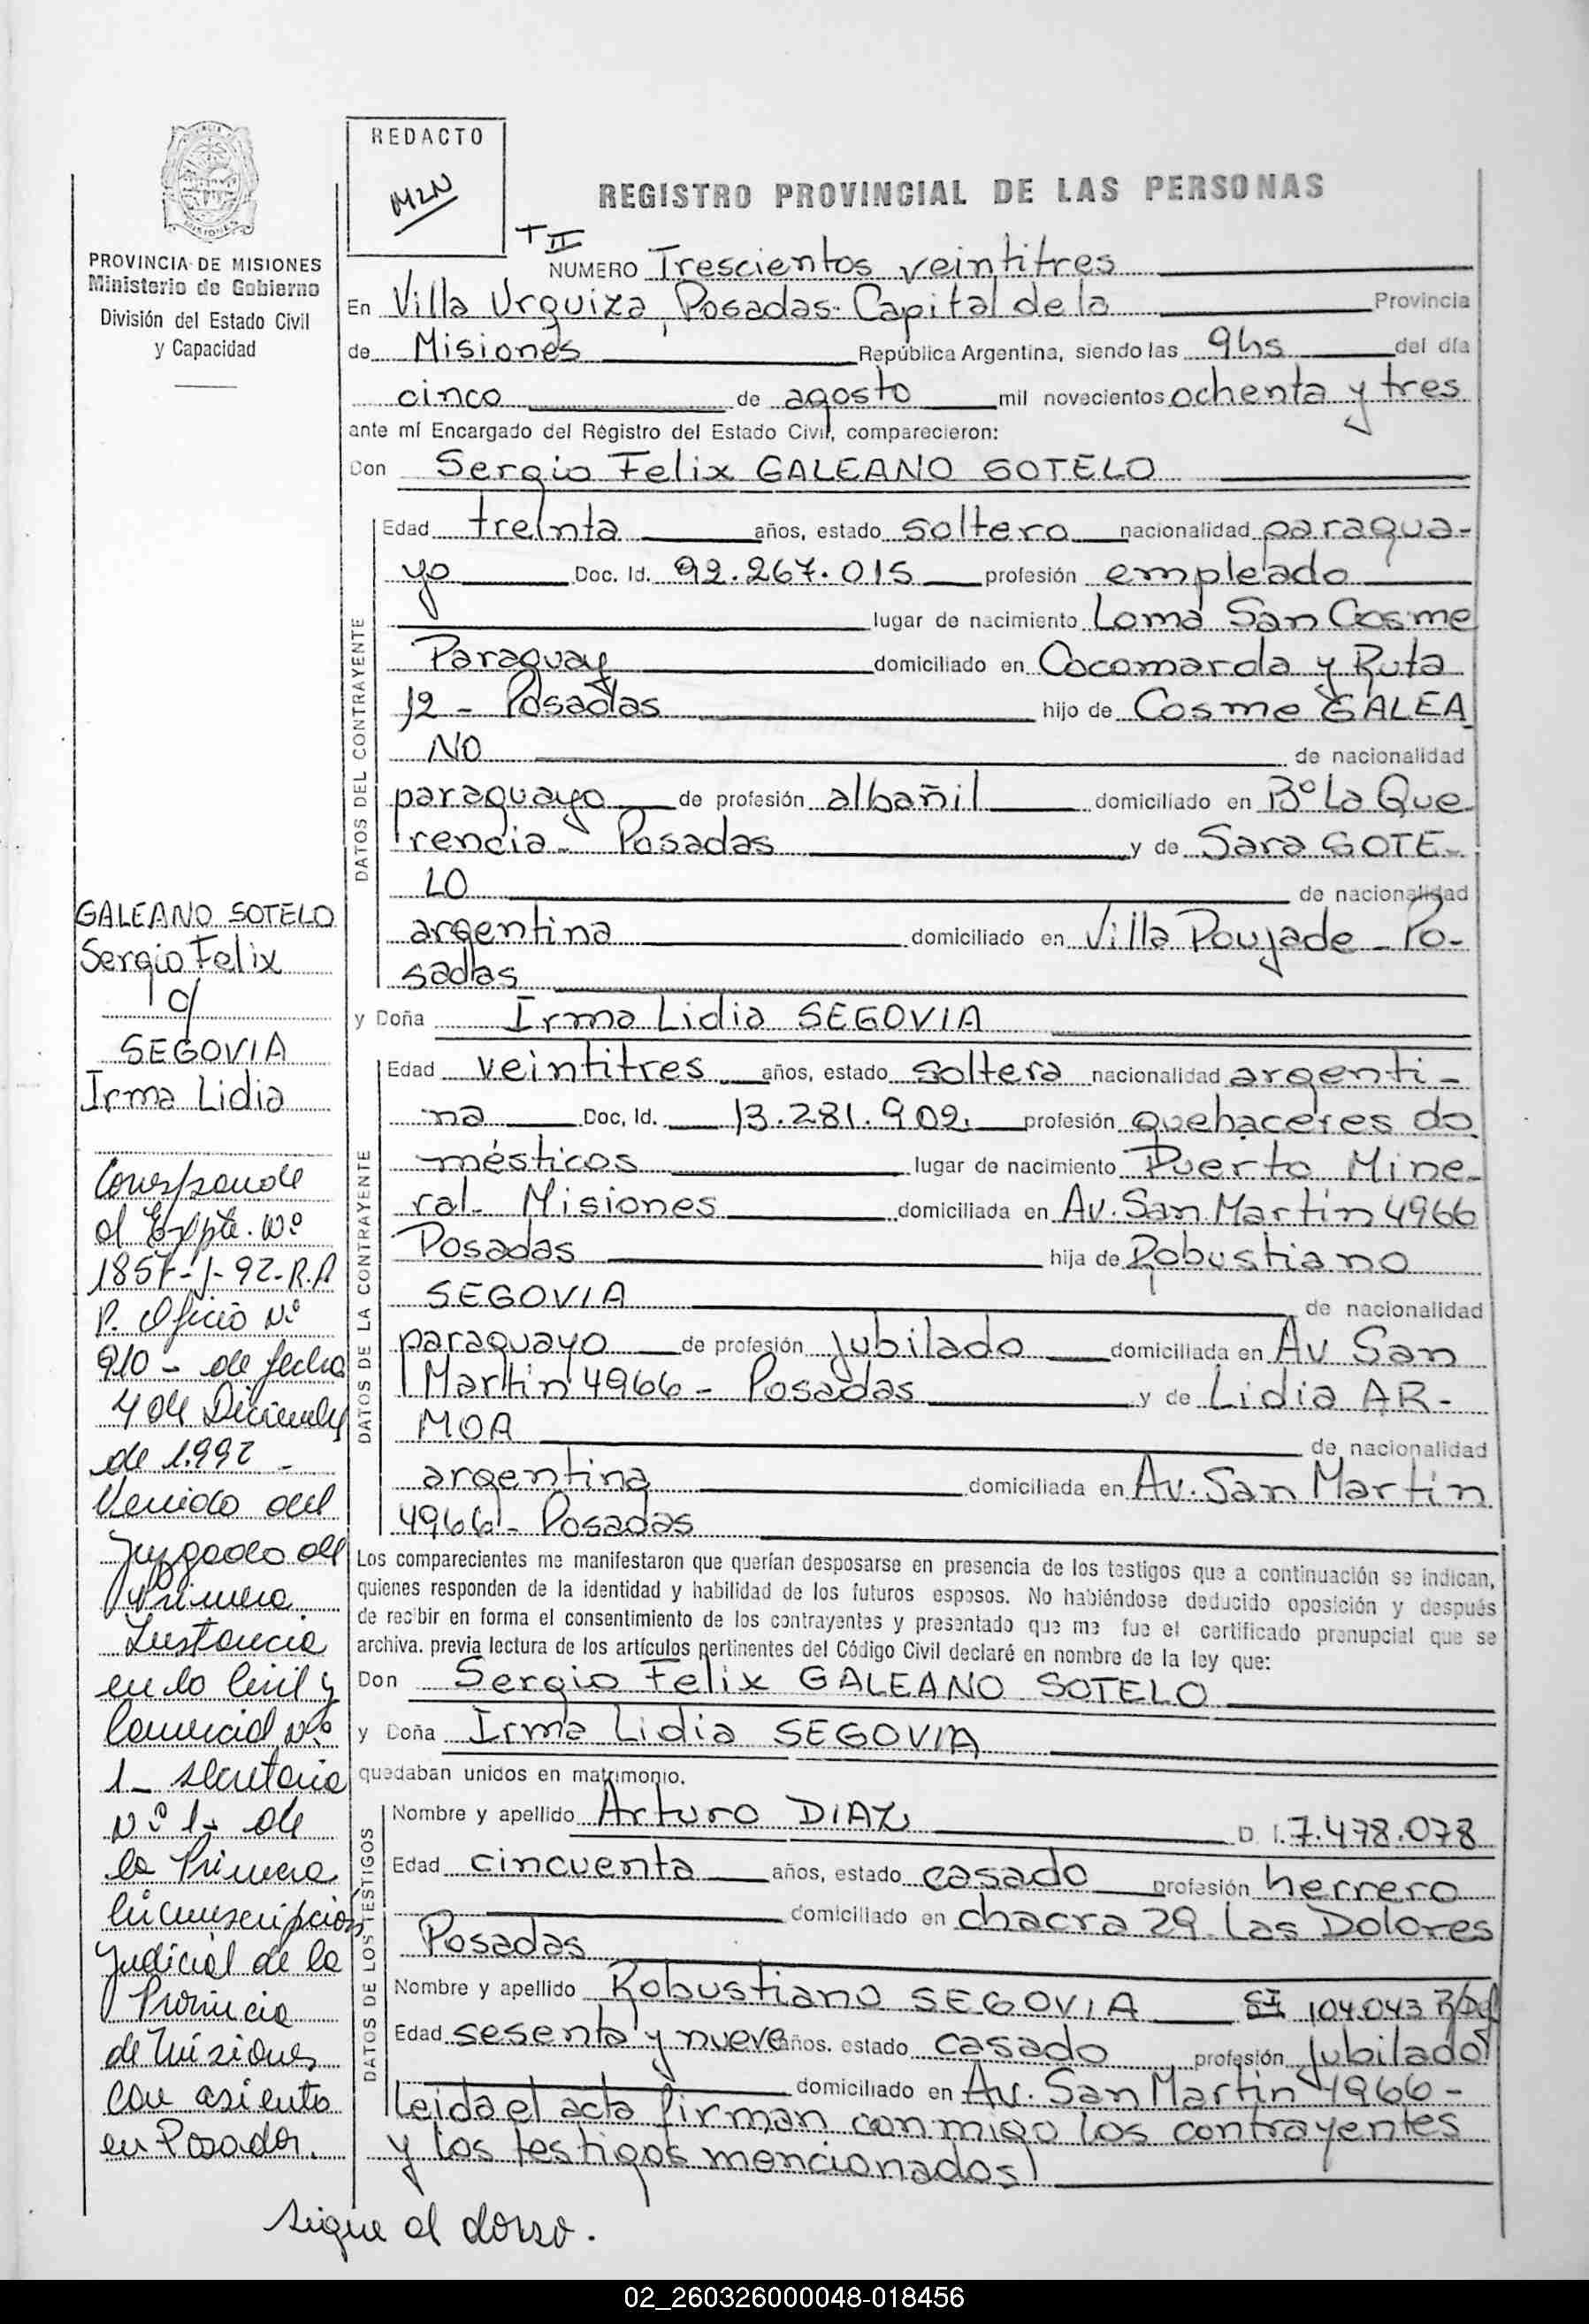 REDACTO
MZN
REGISTRO PROVINCIAL DE LAS PERSONAS
PROVINCIA DE MISIONES
Ministerio de Gobierno
División del Estado Civil
y Capacidad
T II
NUMERO Trescientos veintitres
En Villa Urquiza, Posadas- Capital de la Provincia
de Misiones República Argentina, siendo las 9hs del día
cinco de agosto mil novecientos ochenta y tres
ante mí Encargado del Registro del Estado Civil, comparecieron:
Don Sergio Felix GALEANO SOTELO
DATOS DEL CONTRAYENTE
Edad treinta años, estado soltero nacionalidad paragua-
yo Doc. Id. 92.267.015 profesión empleado
lugar de nacimiento Loma San Cosme
Paraguay domiciliado en Cocomarola y Ruta
12 - Posadas hijo de Cosme GALEA
NO de nacionalidad
paraguayo de profesión albañil domiciliado en B° La Que
rencia - Posadas y de Sara SOTE-
LO de nacionalidad
argentina domiciliado en Villa Poujade - Po-
sadas
y Doña Irma Lidia SEGOVIA
DATOS DE LA CONTRAYENTE
Edad veintitres años, estado soltera nacionalidad argenti-
na Doc, Id. 13.281.902. profesión quehaceres do
mésticos lugar de nacimiento Puerto Mine-
ral- Misiones domiciliada en Av. San Martin 4966
Posadas hija de Robustiano
SEGOVIA de nacionalidad
paraguayo de profesión jubilado domiciliada en Av San
Martin 4966 - Posadas y de Lidia AR-
MOA de nacionalidad
argentina domiciliada en Av. San Martin
4966 - Posadas
Los comparecientes me manifestaron que querían desposarse en presencia de los testigos que a continuación se indican,
quienes responden de la identidad y habilidad de los futuros esposos. No habiéndose deducido oposición y después
de recibir en forma el consentimiento de los contrayentes y presentado que me fue el certificado prenupcial que se
archiva. previa lectura de los artículos pertinentes del Código Civil declaré en nombre de la ley que:
Don Sergio Felix GALEANO SOTELO
y Doña Irma Lidia SEGOVIA
quedaban unidos en matrimonio.
DATOS DE LOS TESTIGOS
Nombre y apellido Arturo DIAZ D. I. 7.478.078
Edad cincuenta años, estado casado profesión herrero
domiciliado en chacra 29. Las Dolores
Posadas
Nombre y apellido Robustiano SEGOVIA CI 104.043
Edad sesenta y nueve años. estado casado profesión jubilado
domiciliado en Av. San Martin 4966 -
Leida el acta firman conmigo los contrayentes
y los testigos mencionados
GALEANO SOTELO
Sergio Felix
c/
SEGOVIA
Irma Lidia
Corresponde
al Expte. Nº
1857-J-92-R.A
P. Oficio Nº
910 - de fecha
4 de Diciembre
de 1.992 -
Venido del
Juzgado de
Primera
Instancia
en lo Civil y
Comercial Nº
1 - secretaria
Nº 1- de
la Primera
Circunscripción
Judicial de la
Provincia
de Misiones
con asiento
en Posadas.
Sigue al dorso.
02_260326000048-018456